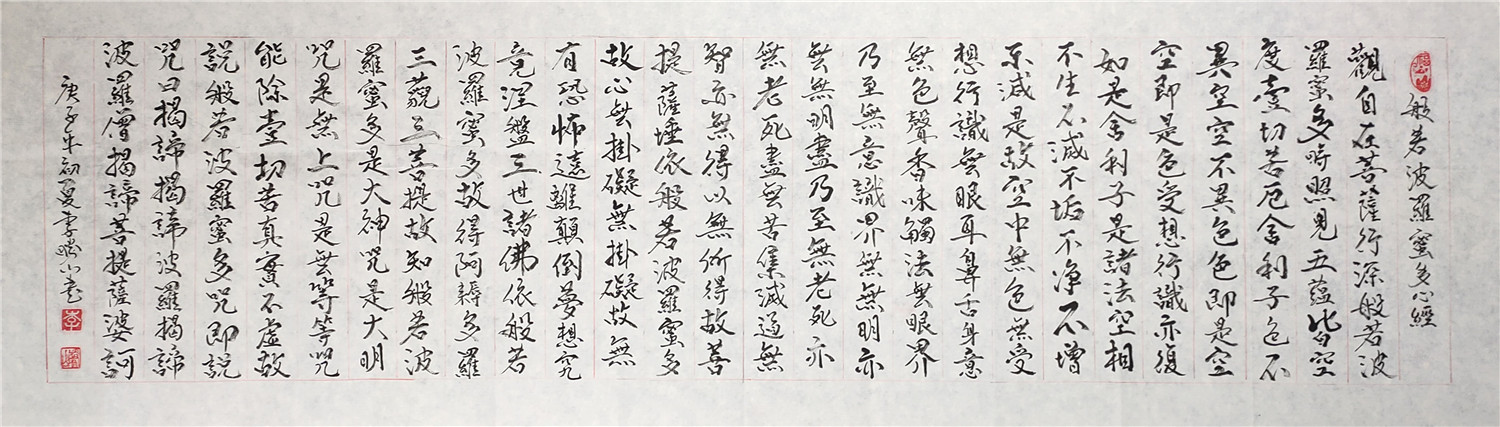 般若波羅蜜多心經
觀自在菩薩行深般若波
羅蜜多時照見五蘊皆空
度壹切苦厄舍利子色不
異空空不異色色即是空
空即是色受想行識亦復
如是舍利子是諸法空相
不生不滅不垢不净不增
不減是故空中無色無受
想行識无眼耳鼻舌身意
無色聲香味觸法无眼界
乃至無意識界無無明亦
无無明盡乃至無老死亦
無老死盡无苦集滅道無
智亦無得以無所得故菩
提薩埵依般若波羅蜜多
故心无掛礙無掛礙故無
有恐怖遠離顛倒夢想究
竟涅盤三世諸佛依般若
波羅蜜多故得阿耨多羅
三藐三菩提故知般若波
羅蜜多是大神咒是大明
咒是無上咒是无等等咒
能除壹切苦真實不虛故
説般若波羅蜜多咒即説
咒曰揭諦揭諦波羅揭諦
波羅僧揭諦菩提薩婆訶
庚子年初夏李
李